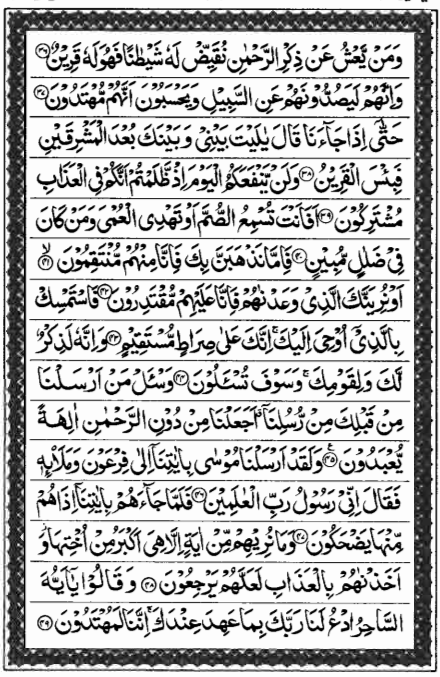 وَمَنْ يَّعْشُ عَنْ ذِكْرِ الرَّحْمٰنِ نُقَيِّضْ لَهٗ شَيْطٰنًا فَهُوَ لَهٗ قَرِيْنٌ ۝۳۶
وَاِنَّهُمْ لَيَصُدُّوْنَهُمْ عَنِ السَّبِيْلِ وَيَحْسَبُوْنَ اَنَّهُمْ مُّهْتَدُوْنَ ۝۳۷
حَتّٰٓى اِذَا جَآءَنَا قَالَ يٰلَيْتَ بَيْنِيْ وَبَيْنَكَ بُعْدَ الْمَشْرِقَيْنِ
فَبِئْسَ الْقَرِيْنُ ۝۳۸ وَلَنْ يَّنْفَعَكُمُ الْيَوْمَ اِذْ ظَّلَمْتُمْ اَنَّكُمْ فِي الْعَذَابِ
مُشْتَرِكُوْنَ ۝۳۹ اَفَاَنْتَ تُسْمِعُ الصُّمَّ اَوْ تَهْدِي الْعُمْيَ وَمَنْ كَانَ
فِيْ ضَلٰلٍ مُّبِيْنٍ ۝۴۰ فَاِمَّا نَذْهَبَنَّ بِكَ فَاِنَّا مِنْهُمْ مُّنْتَقِمُوْنَ ۝۴۱
اَوْ نُرِيَنَّكَ الَّذِيْ وَعَدْنٰهُمْ فَاِنَّا عَلَيْهِمْ مُّقْتَدِرُوْنَ ۝۴۲ فَاسْتَمْسِكْ
بِالَّذِيْٓ اُوْحِيَ اِلَيْكَ ۚ اِنَّكَ عَلٰى صِرَاطٍ مُّسْتَقِيْمٍ ۝۴۳ وَاِنَّهٗ لَذِكْرٌ
لَّكَ وَلِقَوْمِكَ ۚ وَسَوْفَ تُسْـَٔلُوْنَ ۝۴۴ وَسْـَٔلْ مَنْ اَرْسَلْنَا
مِنْ قَبْلِكَ مِنْ رُّسُلِنَآ اَجَعَلْنَا مِنْ دُوْنِ الرَّحْمٰنِ اٰلِهَةً
يُّعْبَدُوْنَ ۝۴۵ وَلَقَدْ اَرْسَلْنَا مُوْسٰى بِاٰيٰتِنَآ اِلٰى فِرْعَوْنَ وَمَلَا۟ئِهٖ
فَقَالَ اِنِّيْ رَسُوْلُ رَبِّ الْعٰلَمِيْنَ ۝۴۶ فَلَمَّا جَآءَهُمْ بِاٰيٰتِنَآ اِذَا هُمْ
مِّنْهَا يَضْحَكُوْنَ ۝۴۷ وَمَا نُرِيْهِمْ مِّنْ اٰيَةٍ اِلَّا هِيَ اَكْبَرُ مِنْ اُخْتِهَا وَ
اَخَذْنٰهُمْ بِالْعَذَابِ لَعَلَّهُمْ يَرْجِعُوْنَ ۝۴۸ وَقَالُوْا يٰٓاَيُّهَ
السّٰحِرُ ادْعُ لَنَا رَبَّكَ بِمَا عَهِدَ عِنْدَكَ ۚ اِنَّنَا لَمُهْتَدُوْنَ ۝۴۹